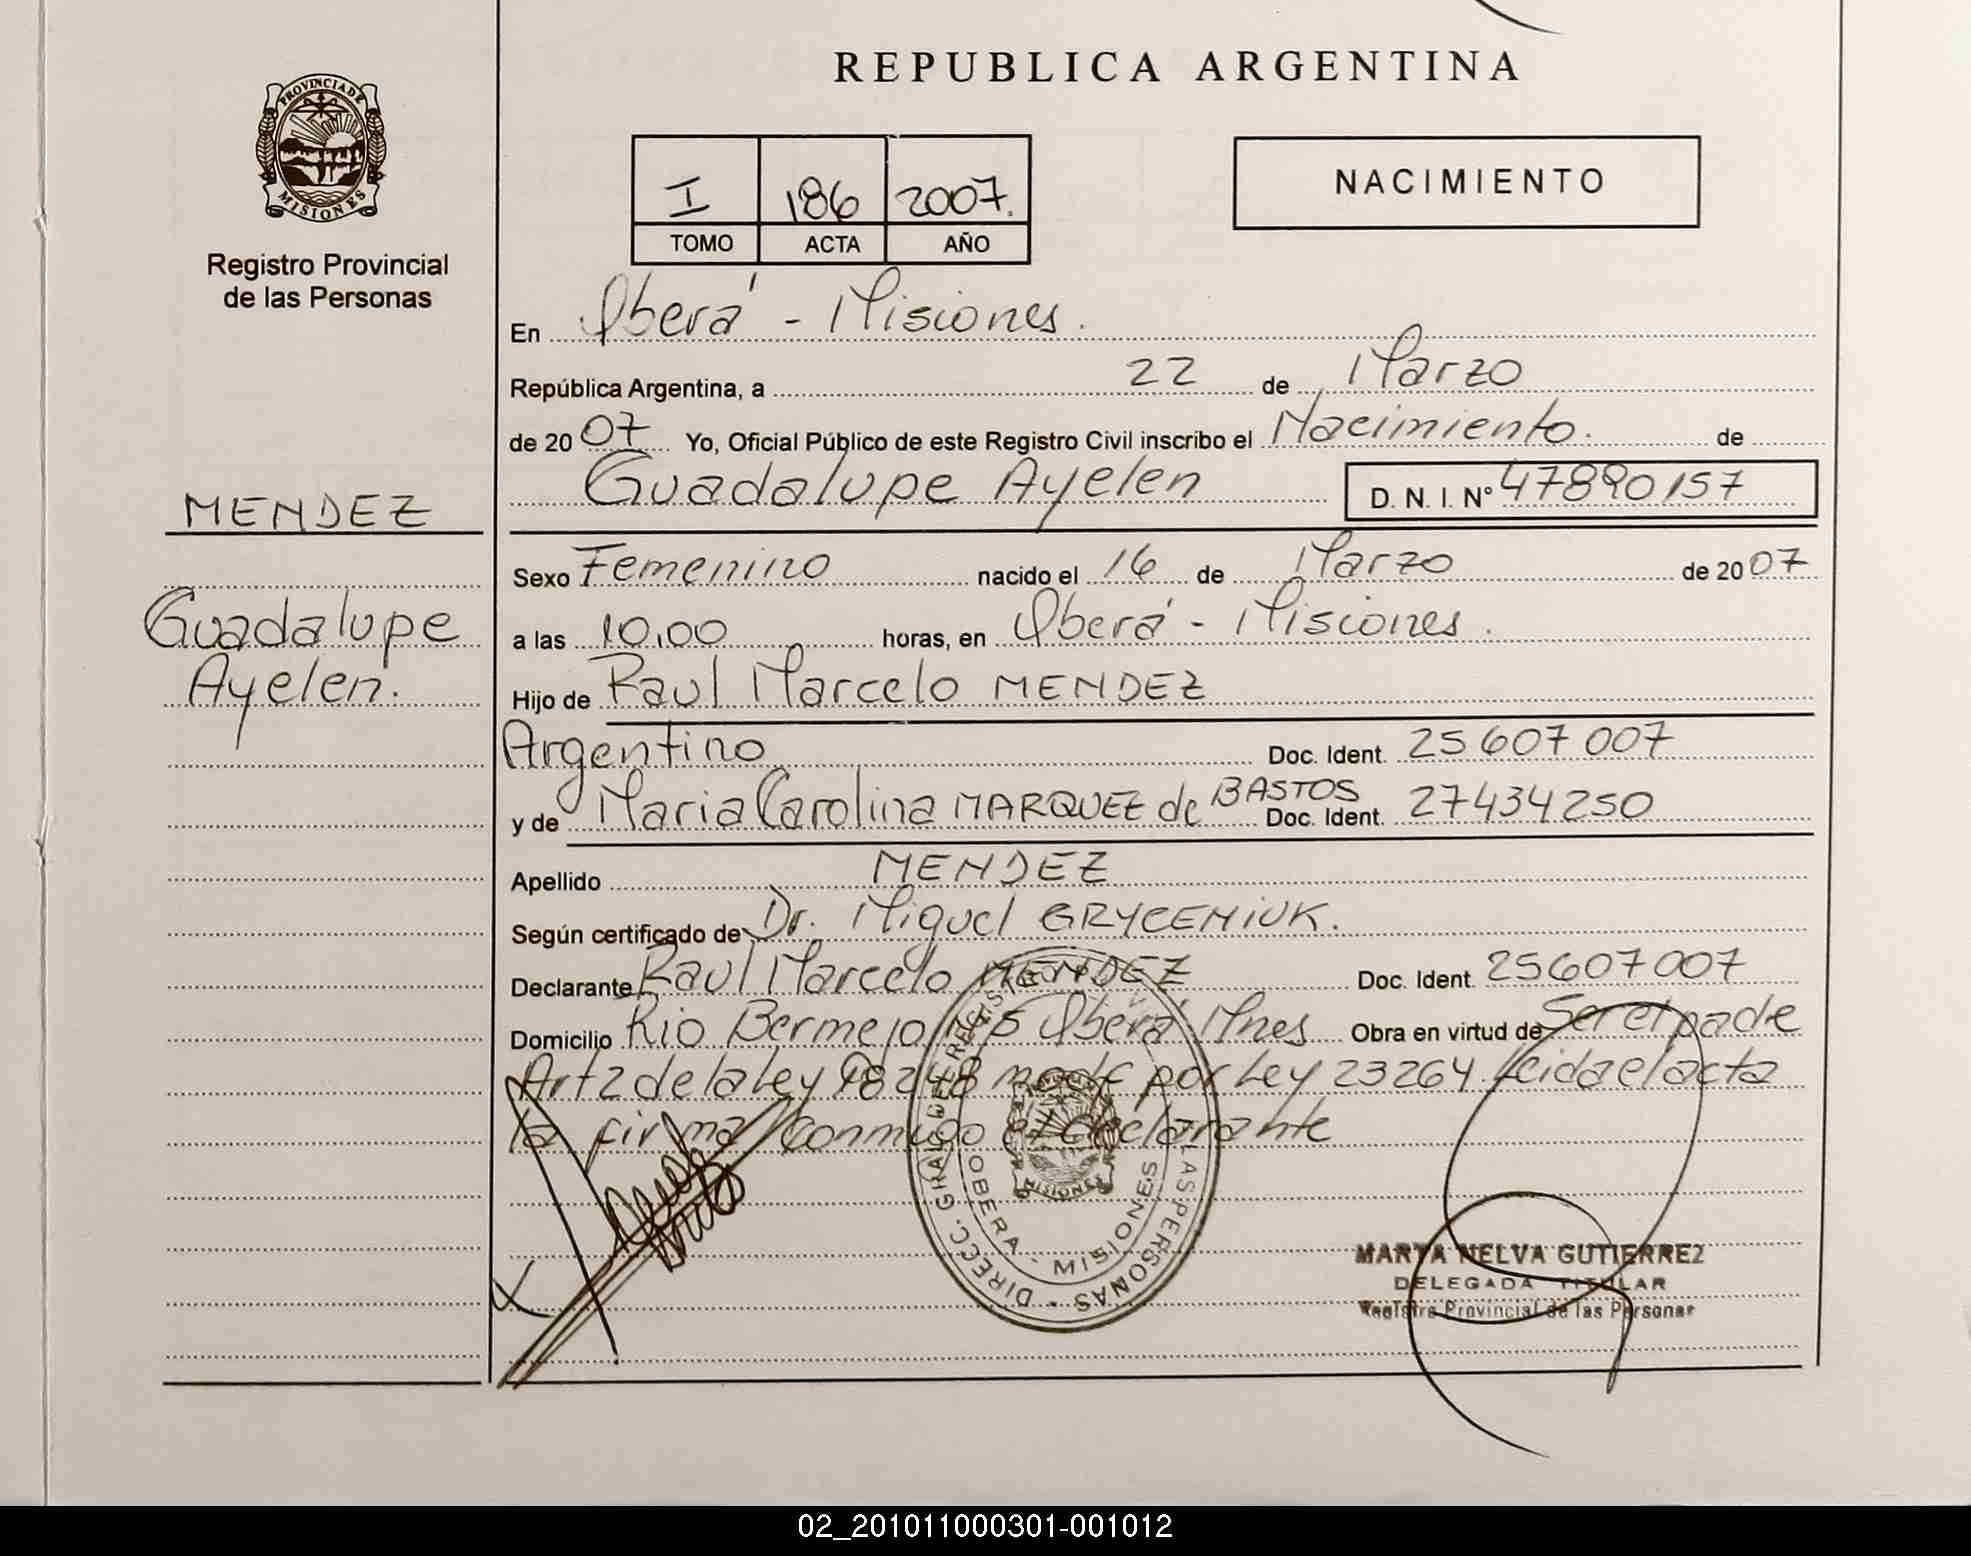 REPUBLICA ARGENTINA
PROVINCIA DE
MISIONES
Registro Provincial
de las Personas
I 186 2007.
TOMO ACTA AÑO
NACIMIENTO
En Oberá - Misiones.
República Argentina, a 22 de Marzo
de 2007 Yo, Oficial Público de este Registro Civil inscribo el Nacimiento. de
Guadalupe Ayelen D. N. I. Nº 47890157
MENDEZ
Guadalupe
Ayelen.
Sexo Femenino nacido el 16 de Marzo de 2007
a las 10.00 horas, en Oberá - Misiones.
Hijo de Raul Marcelo MENDEZ
Argentino Doc. Ident. 25607007
y de Maria Carolina MARQUEZ de BASTOS Doc. Ident. 27434250
Apellido MENDEZ
Según certificado de Dr. Miguel GRYCENIUK.
Declarante Raul Marcelo MENDEZ Doc. Ident. 25607007
Domicilio Rio Bermejo Oberá Mnes Obra en virtud de Ser el padre
Art 2 de la Ley 18248 modf por Ley 23264 leida el acta
la firma conmigo el declarante
DIRECC. GRAL. DEL REGISTRO LAS PERSONAS
OBERA - MISIONES
MISIONES
MARTA NELVA GUTIERREZ
DELEGADA TITULAR
Registro Provincial de las Personas
02_201011000301-001012